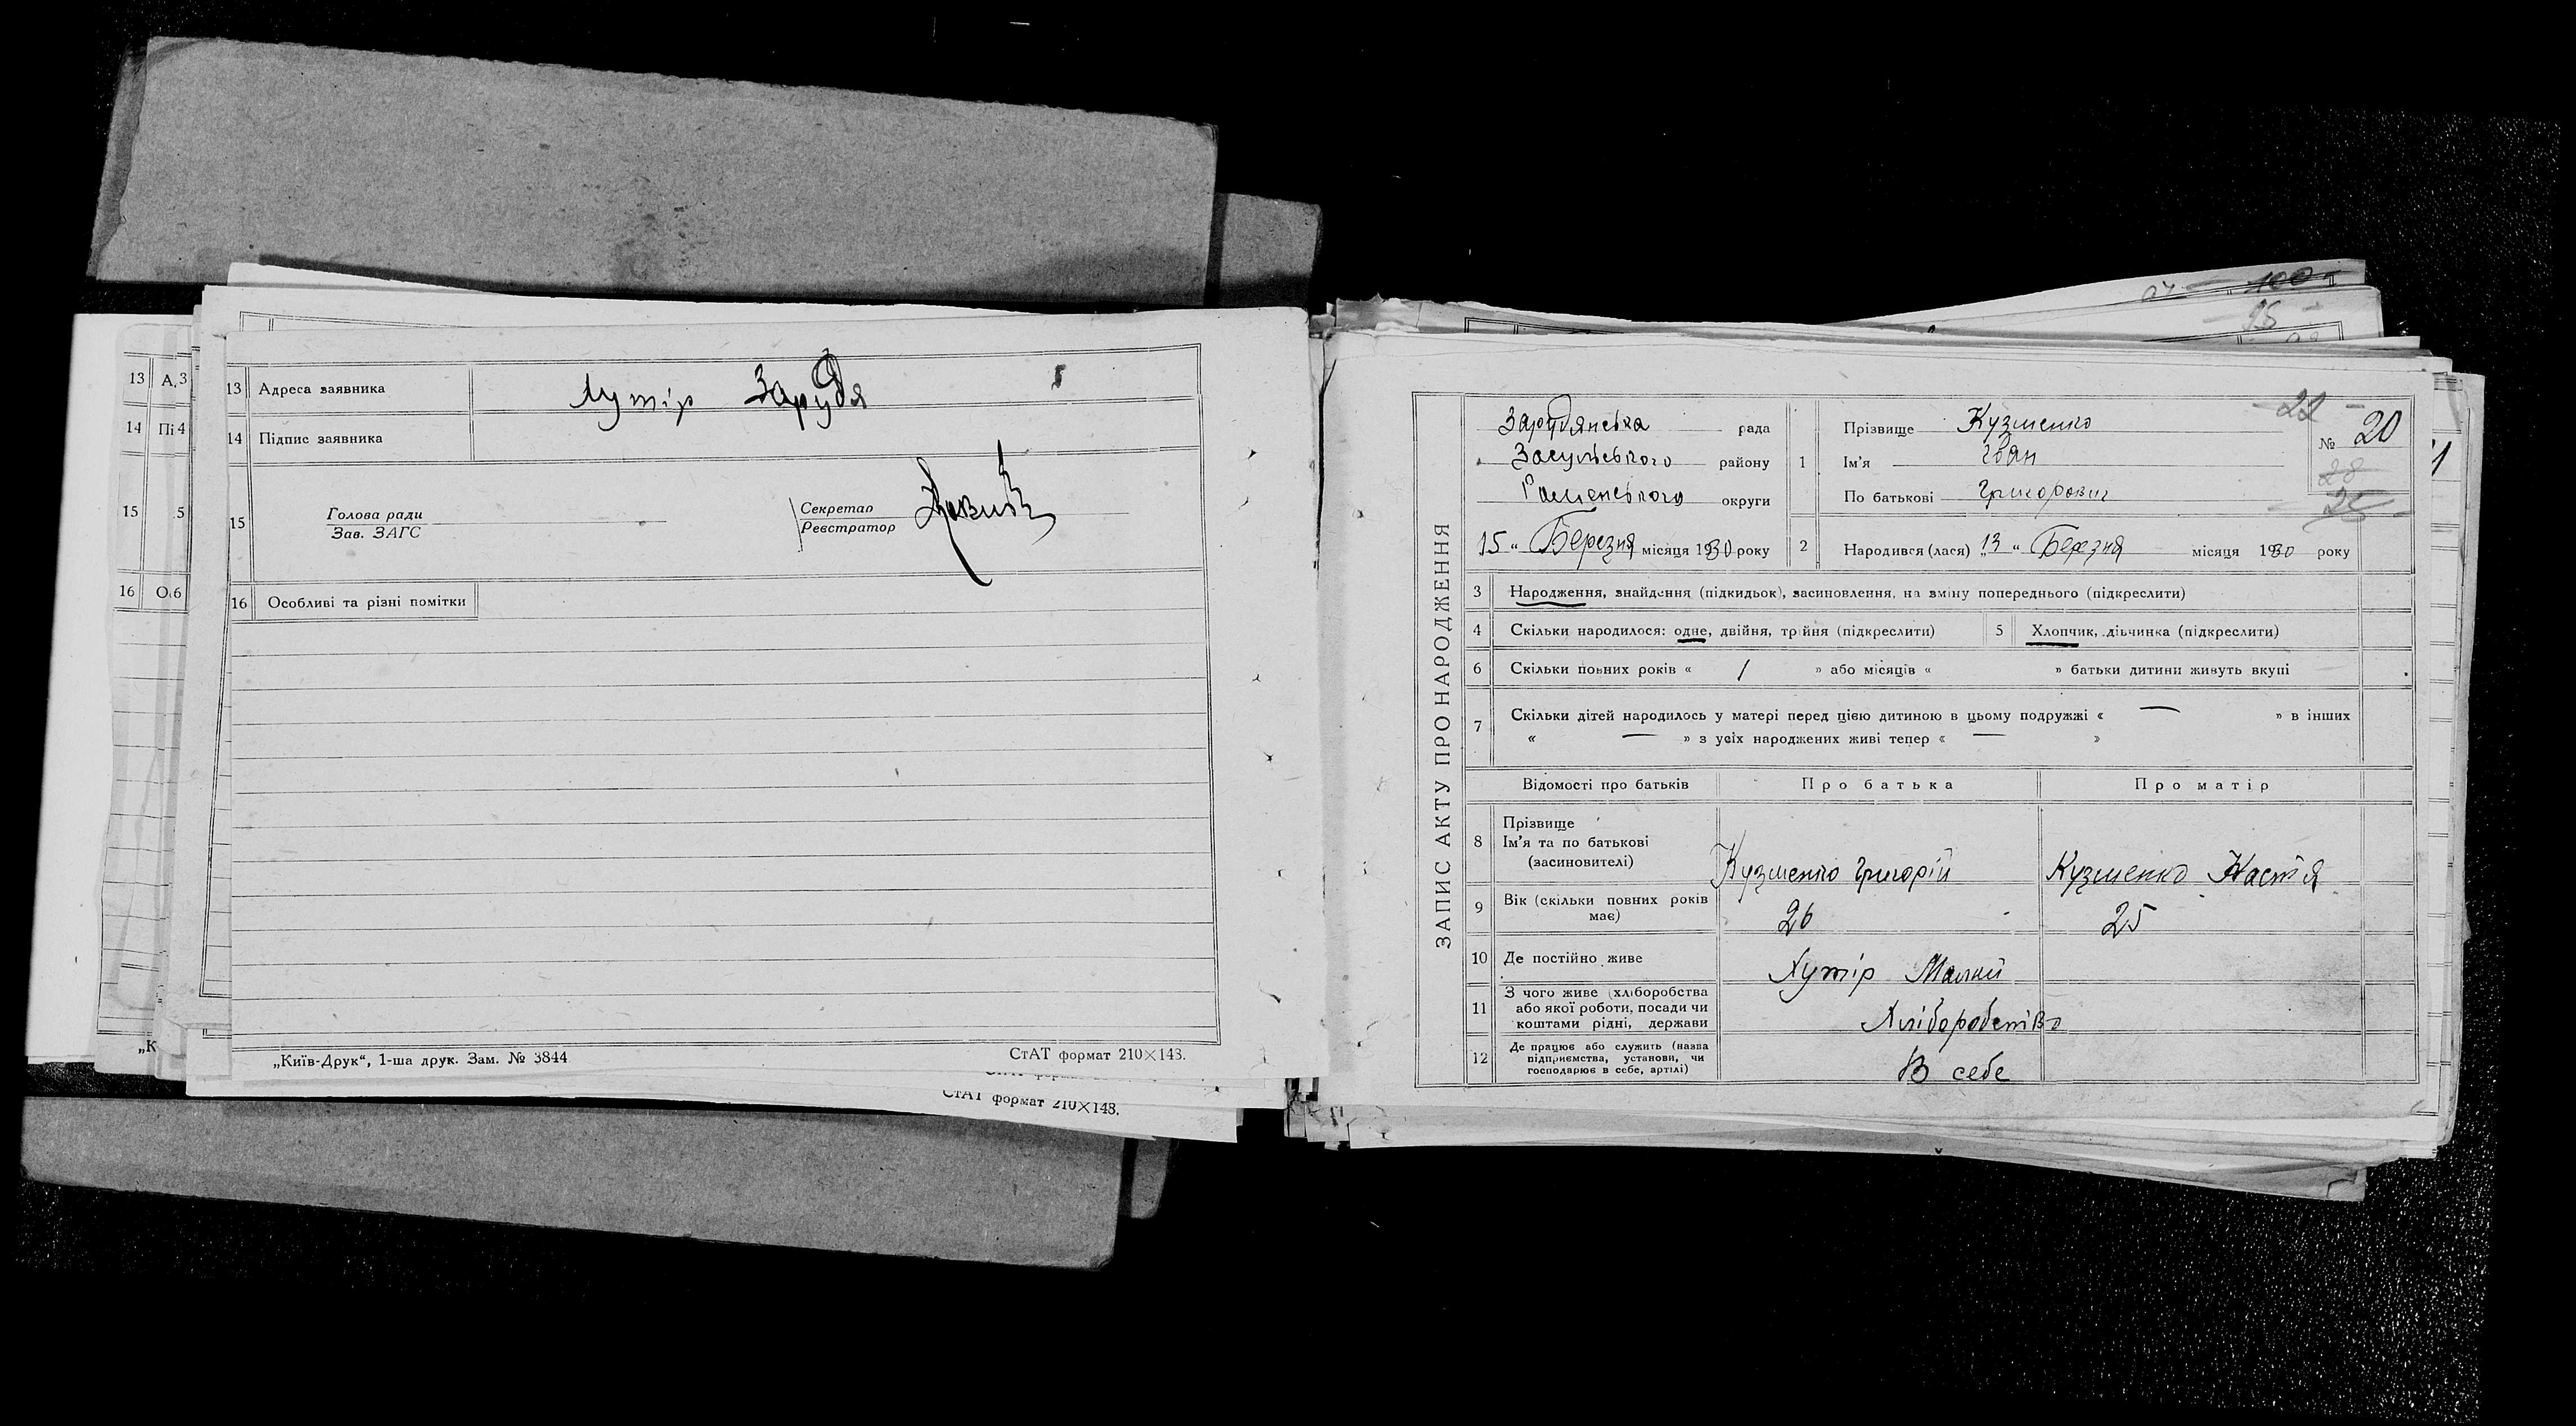 13 Адреса заявника Хутір Зарудя
14 Підпис заявника
15 Голова ради
Зав. ЗАГС
Секретар
Реєстратор
16 Особливі та різні помітки
„Київ-Друк“, 1-ша друк. Зам. № 3844
СтАТ формат 210×143.
СтАТ формат 210×143.
13 А.
14 Пі
15
16 О
100
95
ЗАПИС АКТУ ПРО НАРОДЖЕННЯ
Зарудянська рада
Засульського району
Роменського округи
15 „ Березня місяця 1930 року
1 Прізвище Кузменко
Ім'я Іван
По батькові Григорович
№ 20
28
2 Народився (лася) „ 13 „ Березня місяця 1930 року
3 Народження, знайдення (підкидьок), засиновлення, на зміну попереднього (підкреслити)
4 Скільки народилося: одне, двійня, трійня (підкреслити)
5 Хлопчик, дівчинка (підкреслити)
6 Скільки повних років « / » або місяців « » батьки дитини живуть вкупі
7 Скільки дітей народилось у матері перед цією дитиною в цьому подружжі « — » в інших
« — » з усіх народжених живі тепер « — »
Відомості про батьків Про батька Про матір
8 Прізвище
Ім'я та по батькові
(засиновителі)
Кузменко Григорій Кузменко Настя
9 Вік (скільки повних років
має)
26 25
10 Де постійно живе Хутір
11 З чого живе (хліборобства
або якої роботи, посади чи
коштами рідні, держави
Хліборобство
12 Де працює або служить (назва
підприємства, установи, чи
господарює в себе, артілі)
В себе